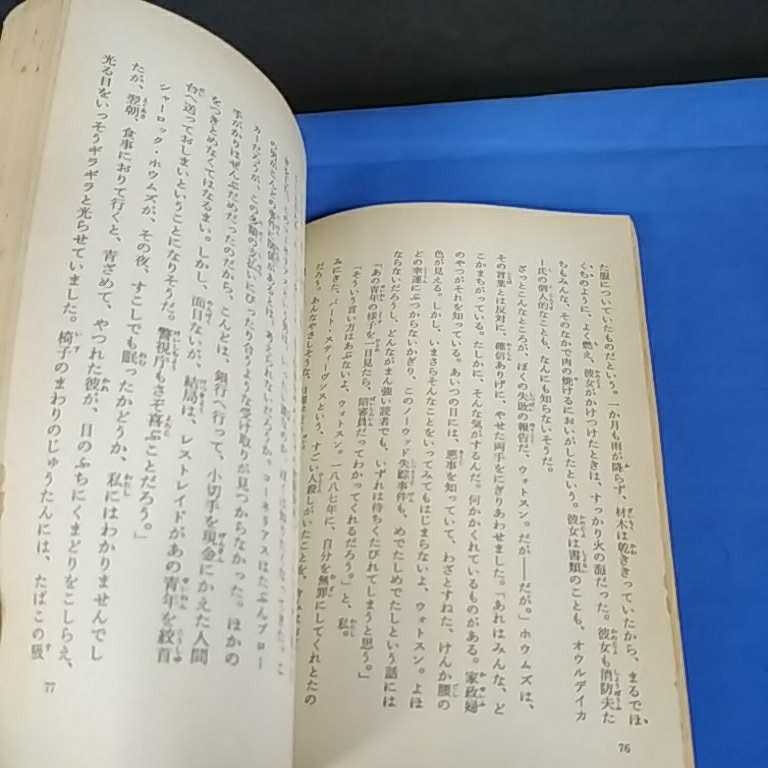 た服についていたものだという。一か月も雨が降らず、材木は乾ききっていたから、まるでほ
くちのように、よく燃え、彼女がかけつけたときは、すっかり火の海だった。彼女も消防夫た
ちもみんな、そのなかで肉の焼けるにおいがしたという。彼女は書類のことも、オウルデイカ
ー氏の個人的なことも、なんにも知らないそうだ。
ざっとこんなところが、ぼくの失敗の報告だ、ウォトスン。だが――だが。」ホウムズは、
その言葉とは反対に、確信ありげに、やせた両手をにぎりあわせました。「あれはみんな、ど
こかまちがっている。たしかに、そんな気がするんだ。何かかくれているものがある。家政婦
のやつがそれを知っている。あいつの目には、悪事を知っていて、わざとすねた、けんか腰の
色が見える。しかし、いまさらそんなことをいってみてもはじまらないよ、ウォトスン。よほ
どの幸運にぶつからないかぎり、このノーウッド失踪事件も、めでたしめでたしという話には
ならないだろうし、どんながまん強い読者でも、いずれは待ちくたびれてしまうと思う。」
「あの青年の様子を一目見たら、陪審員だってわかってくれるだろう。」と、私。
「そういう言い方はあぶないよ、ウォトスン。一八八七年に、自分を無罪にしてくれとたの
みにきた、バート・スティーヴンスという、すごい人殺しがいたことを、
だろう。あんなやさしそうな、
76
カーだろうが、この多額の支払いにぴったり合うような受け取りが見つからなかった。ほかの
手がかりはぜんぶだめだったのだから、こんどは、銀行へ行って、小切手を現金にかえた人間
をつきとめなくてはなるまい。しかし、面目ないが、結局は、レストレイドがあの青年を絞首
台へ送っておしまいということになりそうだ。警視庁もさぞ喜ぶことだろう。」
シャーロック・ホウムズが、その夜、すこしでも眠ったかどうか、私にはわかりませんでし
たが、翌朝、食事におりて行くと、青ざめて、やつれた彼が、目のふちにくまどりをこしらえ、
光る目をいっそうギラギラと光らせていました。椅子のまわりのじゅうたんには、たばこの吸
77